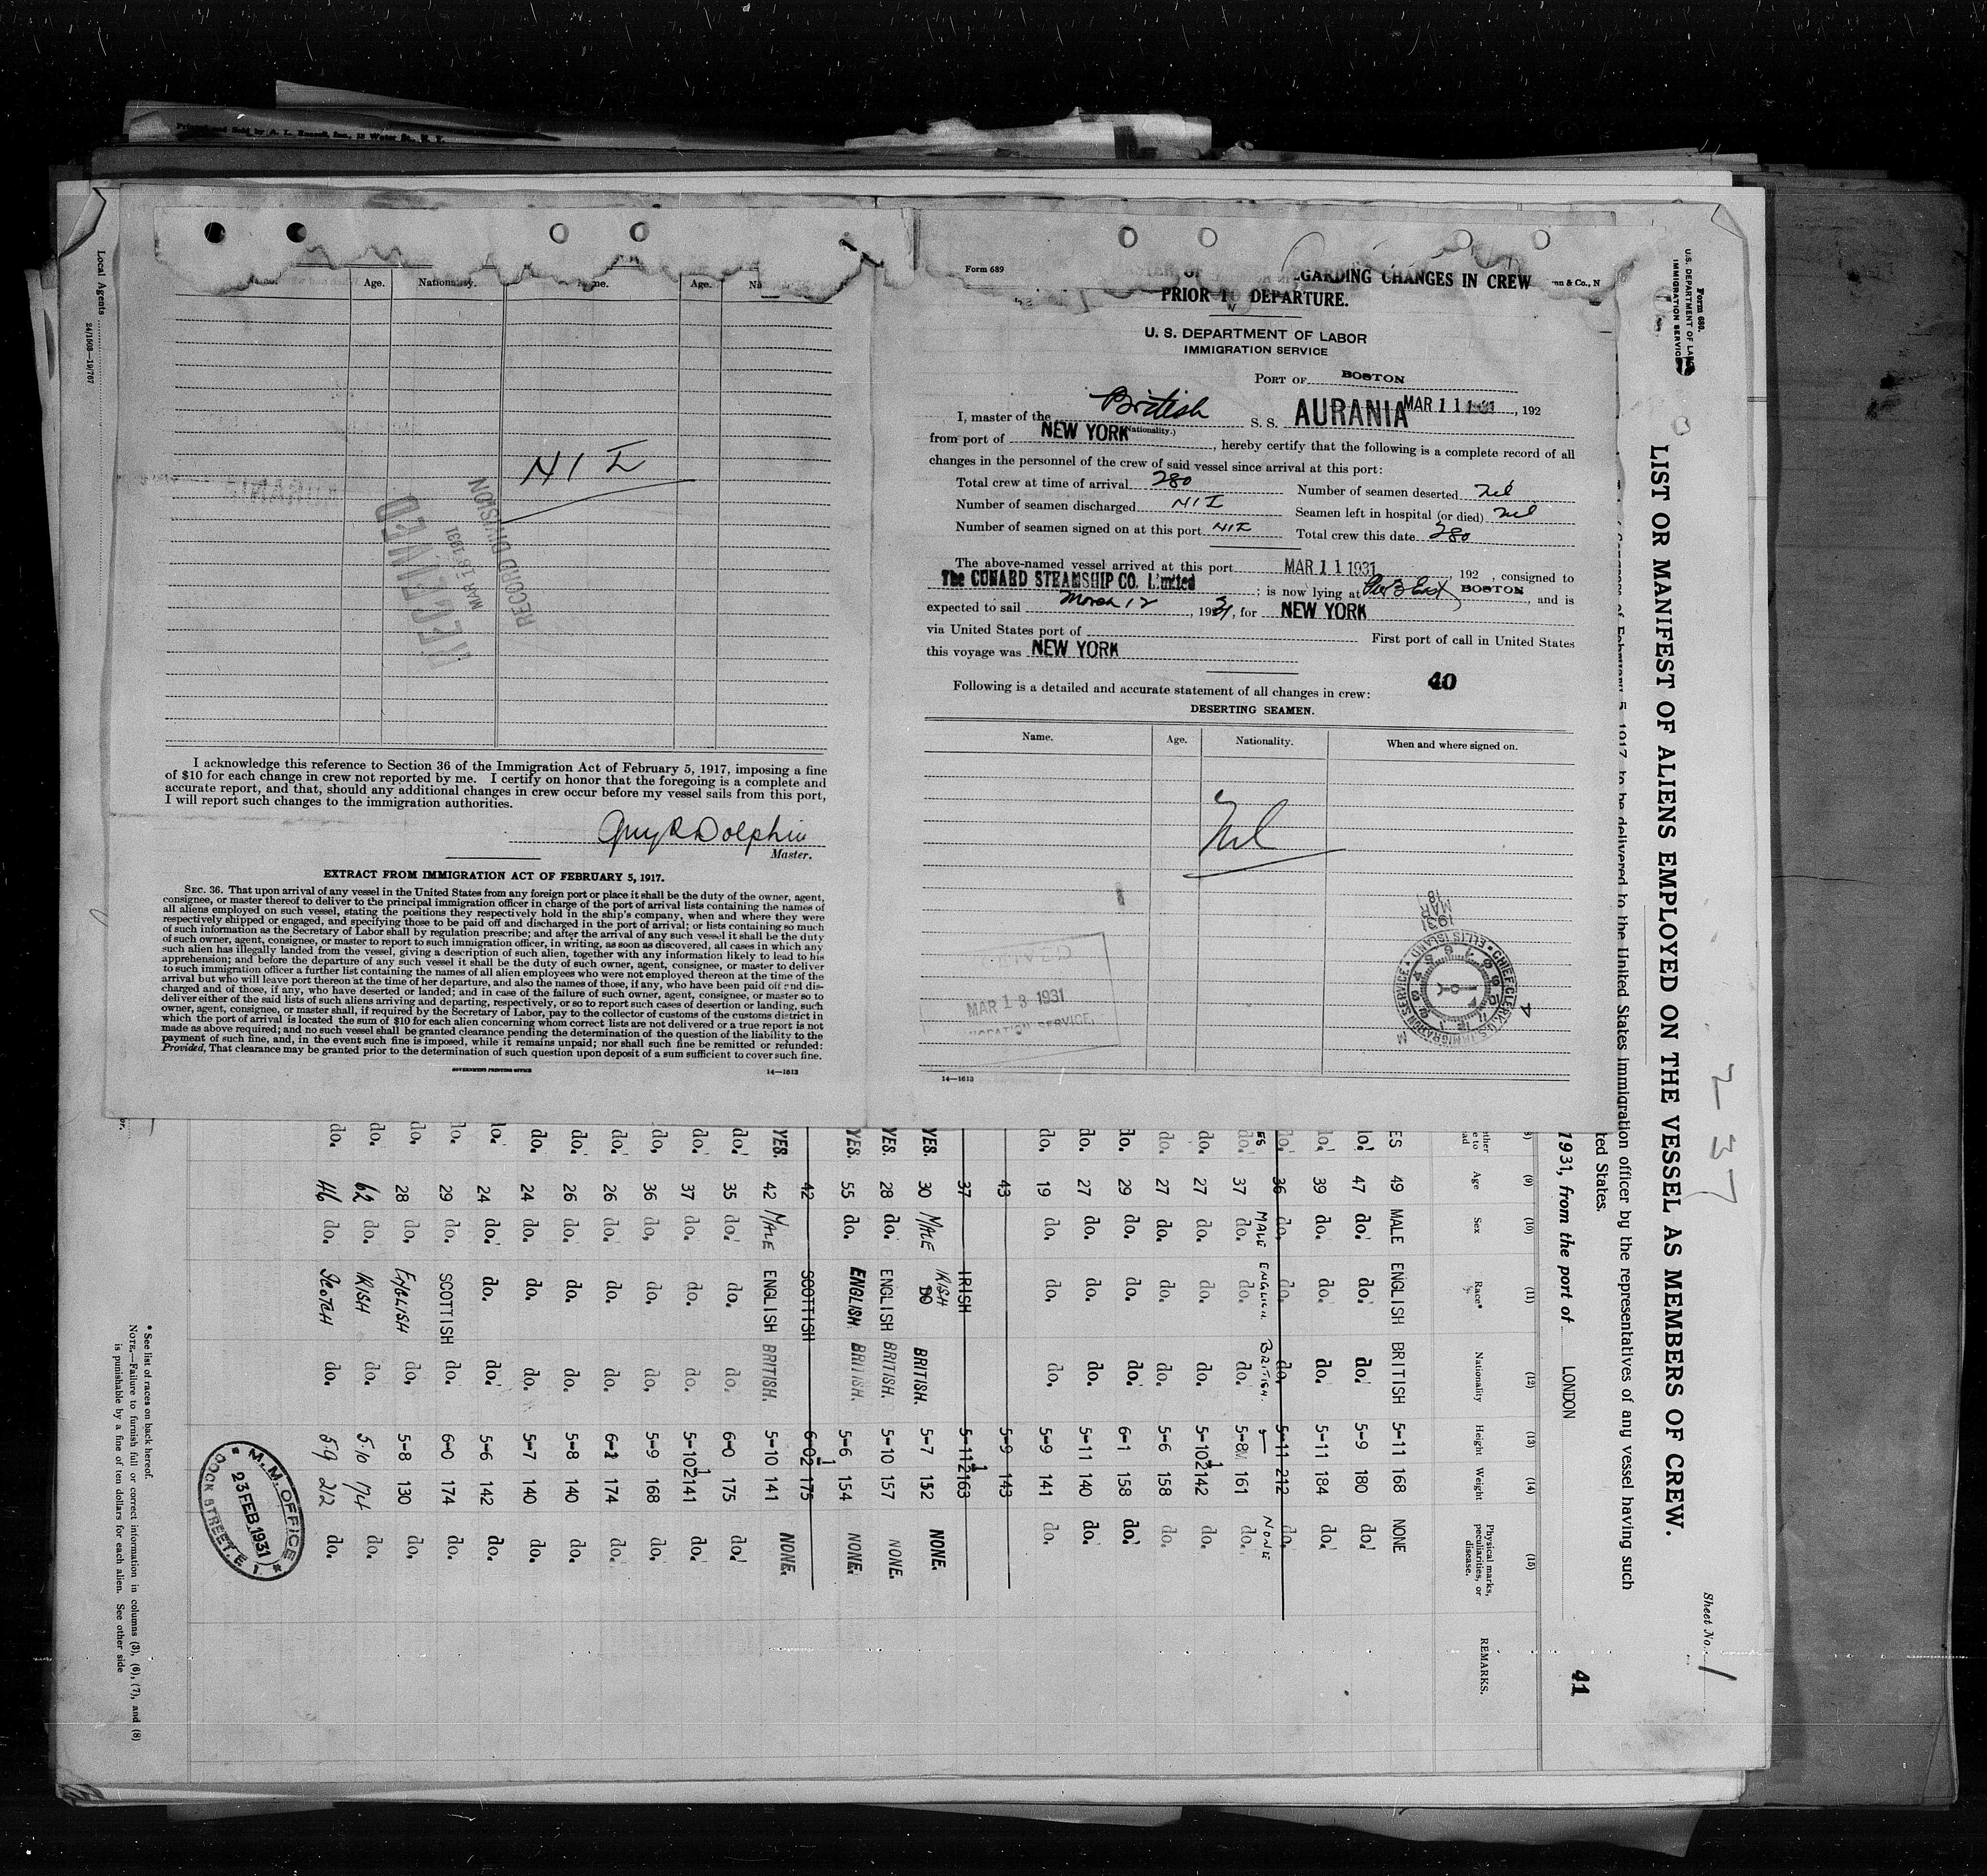 Printed and Sold by A. L. Russell, Inc., 12 Water St., N. Y.
Age.
Nationality.
Name.
Age.
NIL
RECEIVED
MAR 18 1931
RECORD DIVISION
I acknowledge this reference to Section 36 of the Immigration Act of February 5, 1917, imposing a fine
of $10 for each change in crew not reported by me. I certify on honor that the foregoing is a complete and
accurate report, and that, should any additional changes in crew occur before my vessel sails from this port,
I will report such changes to the immigration authorities.
Dolphin
Master.
EXTRACT FROM IMMIGRATION ACT OF FEBRUARY 5, 1917.
SEC. 36. That upon arrival of any vessel in the United States from any foreign port or place it shall be the duty of the owner, agent,
consignee, or master thereof to deliver to the principal immigration officer in charge of the port of arrival lists containing the names of
all aliens employed on such vessel, stating the positions they respectively hold in the ship's company, when and where they were
respectively shipped or engaged, and specifying those to be paid off and discharged in the port of arrival; or lists containing so much
of such information as the Secretary of Labor shall by regulation prescribe; and after the arrival of any such vessel it shall be the duty
of such owner, agent, consignee, or master to report to such immigration officer, in writing, as soon as discovered, all cases in which any
such alien has illegally landed from the vessel, giving a description of such alien, together with any information likely to lead to his
apprehension; and before the departure of any such vessel it shall be the duty of such owner, agent, consignee, or master to deliver
to such immigration officer a further list containing the names of all alien employees who were not employed thereon at the time of the
arrival but who will leave port thereon at the time of her departure, and also the names of those, if any, who have been paid off and dis-
charged and of those, if any, who have deserted or landed; and in case of the failure of such owner, agent, consignee, or master so to
deliver either of the said lists of such aliens arriving and departing, respectively, or so to report such cases of desertion or landing, such
owner, agent, consignee, or master shall, if required by the Secretary of Labor, pay to the collector of customs of the customs district in
which the port of arrival is located the sum of $10 for each alien concerning whom correct lists are not delivered or a true report is not
made as above required; and no such vessel shall be granted clearance pending the determination of the question of the liability to the
payment of such fine, and, in the event such fine is imposed, while it remains unpaid; nor shall such fine be remitted or refunded:
Provided, That clearance may be granted prior to the determination of such question upon deposit of a sum sufficient to cover such fine.
GOVERNMENT PRINTING OFFICE
14—1613
Form 689
GARDING CHANGES IN CREW
PRIOR TO DEPARTURE.
nn & Co., N
U. S. DEPARTMENT OF LABOR
IMMIGRATION SERVICE
PORT OF BOSTON
MAR 11 1931, 192
I, master of the British S. S. AURANIA
(Nationality.)
from port of NEW YORK, hereby certify that the following is a complete record of all
changes in the personnel of the crew of said vessel since arrival at this port:
Total crew at time of arrival 280
Number of seamen deserted Nil
Number of seamen discharged NIL
Seamen left in hospital (or died) Nil
Number of seamen signed on at this port NIL
Total crew this date 280
The above-named vessel arrived at this port MAR 11 1931, 192 , consigned to
The CUNARD STEAMSHIP CO. Limited; is now lying at Pier 3 East BOSTON, and is
expected to sail March 12, 1931, for NEW YORK
via United States port of
First port of call in United States
this voyage was NEW YORK
40
Following is a detailed and accurate statement of all changes in crew:
DESERTING SEAMEN.
Name. Age. Nationality. When and where signed on.
Nil
MAR 13 1931
SERVICE.
1931
MAR
8
CHIEF CLERK U.S. IMMIGRATION SERVICE • ELLIS ISLAND
14—1613
Form 680.
U.S. DEPARTMENT OF LABOR
IMMIGRATION SERVICE
LIST OR MANIFEST OF ALIENS EMPLOYED ON THE VESSEL AS MEMBERS OF CREW.
Sheet No. 1
2-37
of February 5, 1917, to be delivered to the United States immigration officer by the representatives of any vessel having such
ted States.
1931, from the port of LONDON
41
(9) (10) (11) (12) (13) (14) (15)
Age Sex Race* Nationality Height Weight Physical marks, peculiarities, or disease. REMARKS.
ES 49 MALE ENGLISH BRITISH 5-11 168 NONE
do. 47 do. do. 5-9 180 do.
do. 39 do. do. do. 5-11 184 do.
do. 36 do. do. do. 5-11 212 do.
MALE ENGLISH BRITISH. NONE
do. 37 do. do. 5-8 161 do.
do. 27 do. do. do. 5-10½ 142 do.
do. 27 do. do. do. 5-6 158 do.
do. 29 do. do. do. 6-1 158 do.
do. 27 do. do. do. 5-11 140 do.
do. 19 do. do. do. 5-9 141 do.
43 5-9 143
37 IRISH 5-11½ 163
YES. 30 MALE DO IRISH BRITISH. 5-7 152 NONE.
YES. 28 do. ENGLISH BRITISH. 5-10 157 NONE.
YES. 55 do. ENGLISH. BRITISH. 5-6 154 NONE.
42 SCOTTISH 6-0½ 175
YES. 42 MALE ENGLISH BRITISH. 5-10 141 NONE.
do. 35 do. do. do. 6-0 175 do.
do. 37 do. do. do. 5-10½ 141 do.
do. 36 do. do. do. 5-9 168 do.
do. 26 do. do. do. 6-1 174 do.
do. 26 do. do. do. 5-8 140 do.
do. 24 do. do. do. 5-7 140 do.
do. 24 do. do. do. 5-6 142 do.
do. 29 do. SCOTTISH do. 6-0 174 do.
do. 28 do. ENGLISH do. 5-8 130 do.
do. 62 do. IRISH do. 5.10 174 do.
do. 46 do. SCOTCH do. 5.9 212 do.
M.M. OFFICE
23 FEB 1931
DOCK STREET. E. 1.
* See list of races on back hereof.
NOTE.—Failure to furnish full or correct information in columns (3), (6), (7), and (8)
is punishable by a fine of ten dollars for each alien. See other side
Local Agents
24/1508—19/767